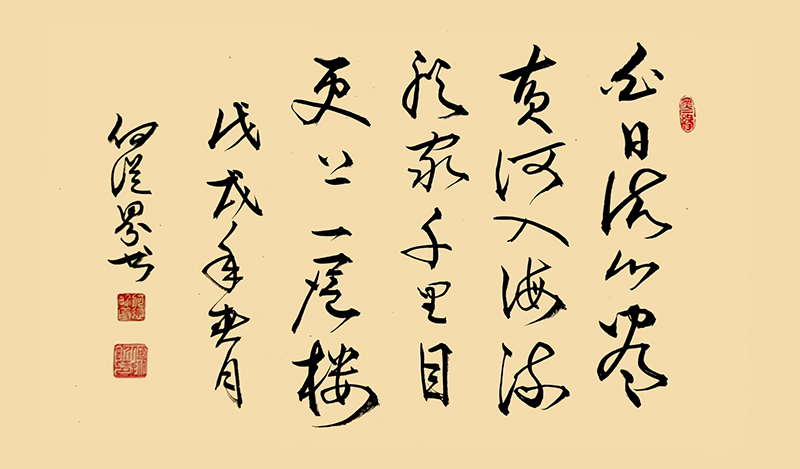 白日依山尽
黄河入海流
欲穷千里目
更上一层楼
戊戌年春月
何 书